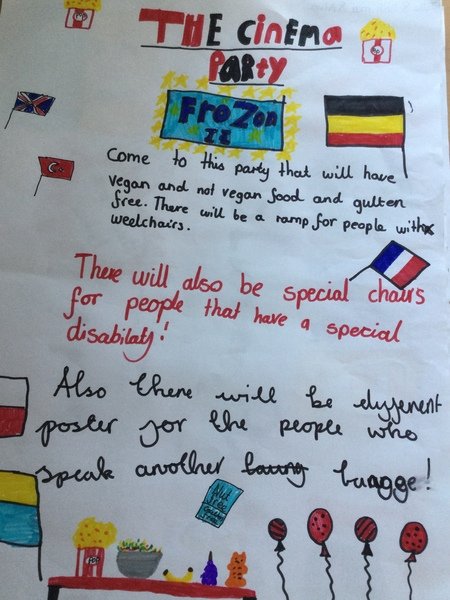 THE CiNEMa
PaRty
FroZon
II
Come to this party that will have
vegan and not vegan food and gulten
free. There will be a ramp for people with
weelchairs.
There will also be special chairs
for people that have a special
disabilaty!
Also there will be dyfferent
poster for the people who
speak another